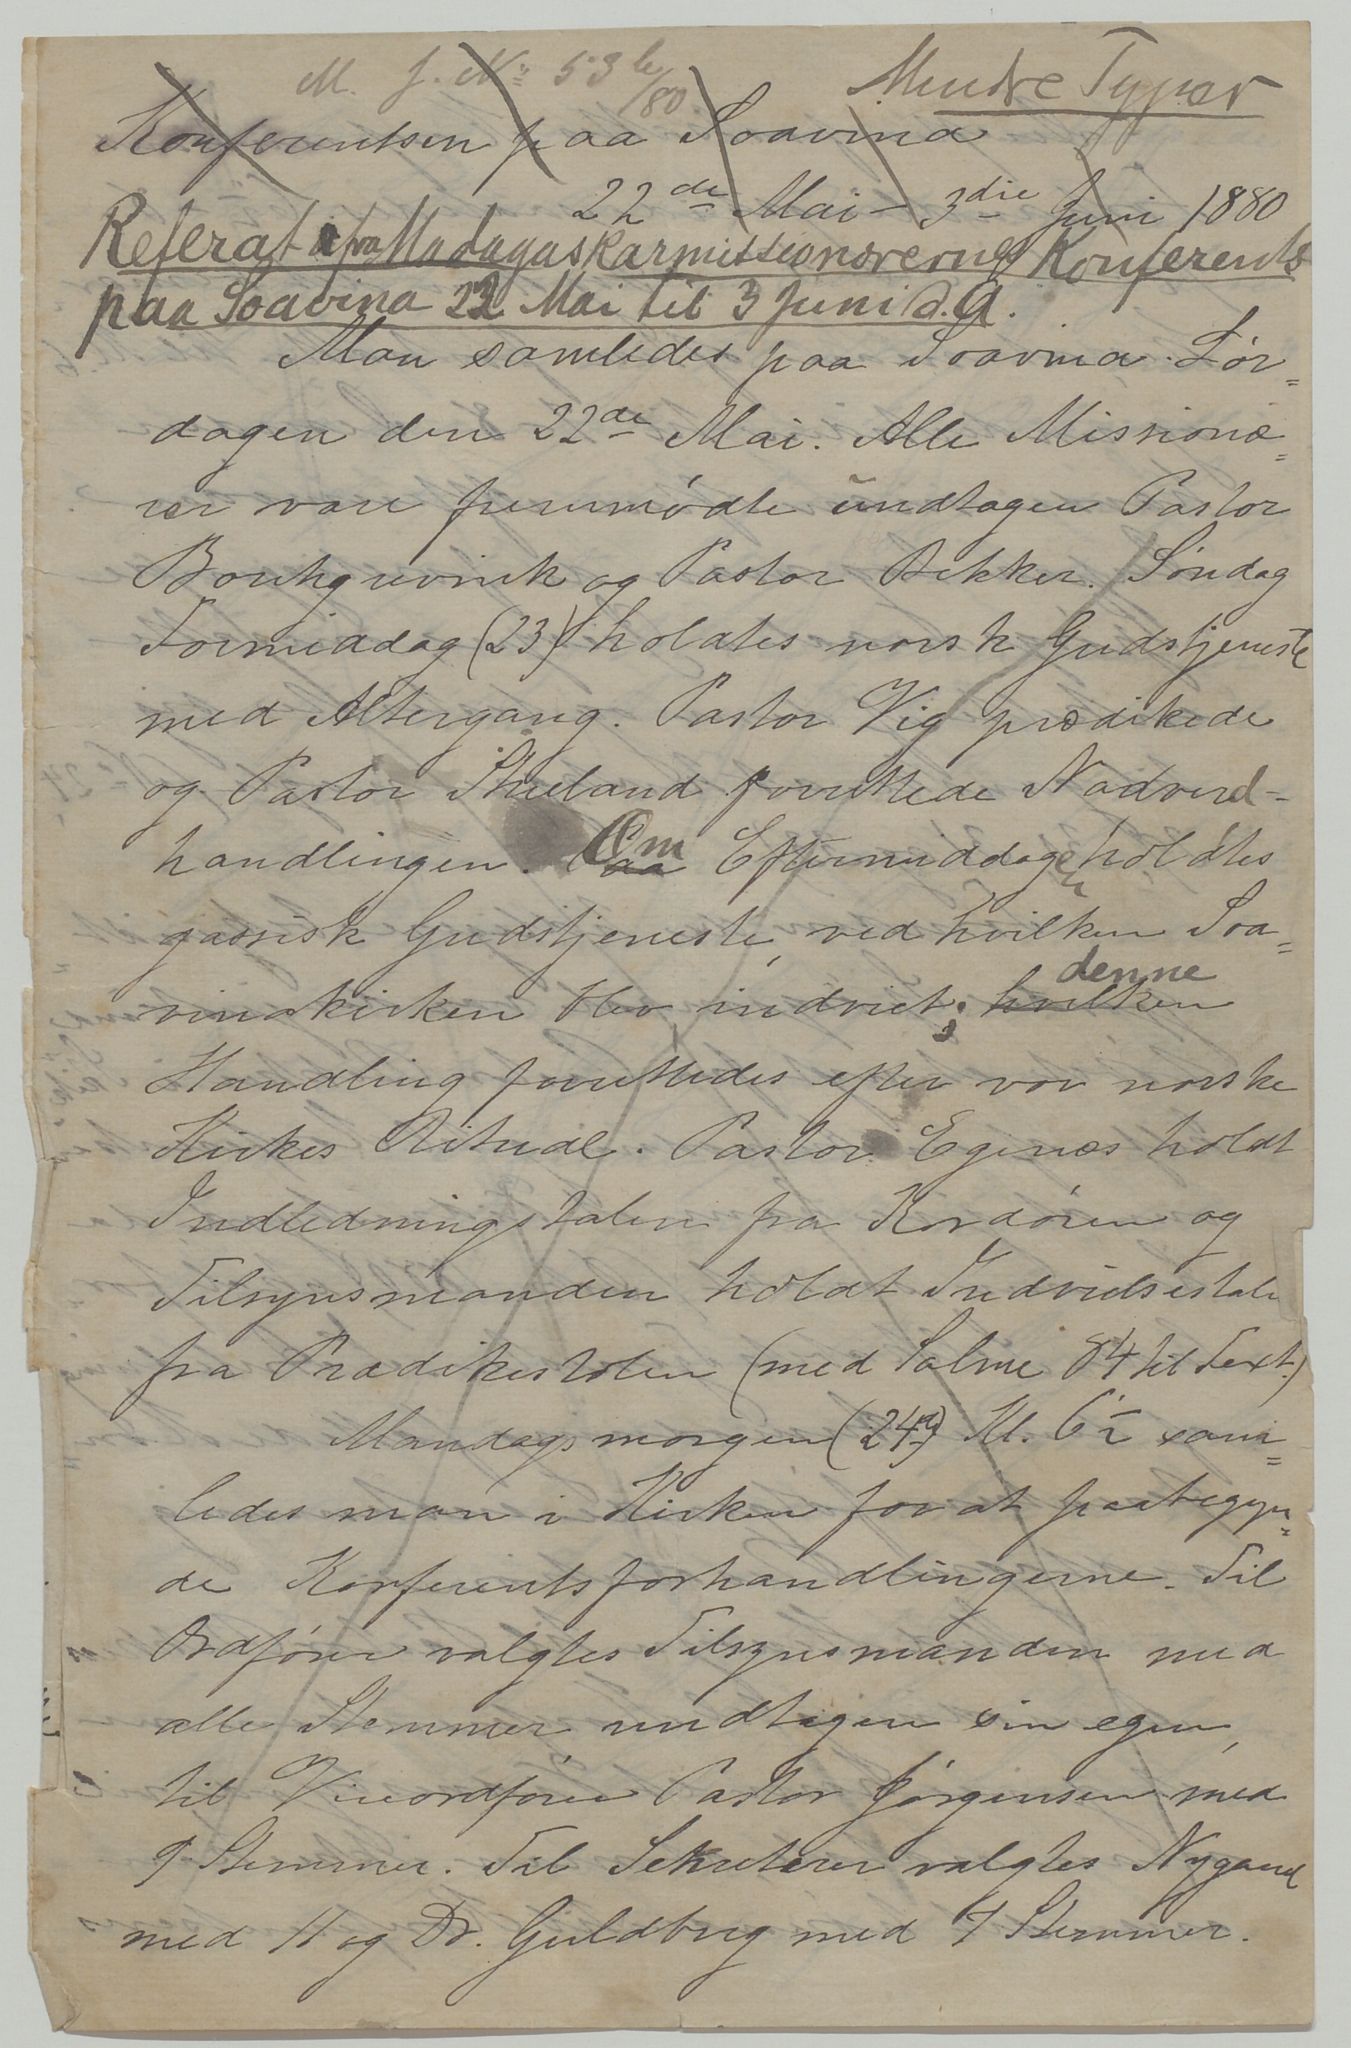 M. J. No 53 b/80
Mindre Typer
Konferentsen paa Soavina
22de Mai – 3die Juni 1880
Referat fra Madagaskarmissionærernes Konferents
paa Soavina 22 Mai til 3 Juni d.A.
Man samledes paa Soavina Lør-
dagen den 22de Mai. Alle Missionæ-
rer vare fremmødte undtagen Pastor
Borchgrevink og Pastor Bekker. Søndag
Formiddag (23) holdtes norsk Gudstjeneste
med Altergang. Pastor Vig prædikede
og Pastor Stueland forrettede Nadverd-
handlingen. Paa Om Eftermiddagen holdtes
gassisk Gudstjeneste, ved hvilken Soa-
vinakirken blev indviet; hvilken denne
Handling forrettedes efter vor norske
Kirkes Ritual. Pastor Egenæs holdt
Indledningstalen fra Kordøren og
Tilsynsmanden holdt Indvielsestale
fra Prædikestolen (med Salme 84 til Text.)
Mandags morgen (24de) Kl. 6½ sam-
ledes man i Kirken for at paabegyn-
de Konferentsforhandlingerne. Til
Ordfører valgtes Tilsynsmanden med
alle Stemmer undtagen sin egen,
til Viceordfører Pastor Jørgensen med
9 Stemmer. Til Sekretærer valgtes Nygaard
med 11 og Dr. Guldberg med 7 Stemmer.